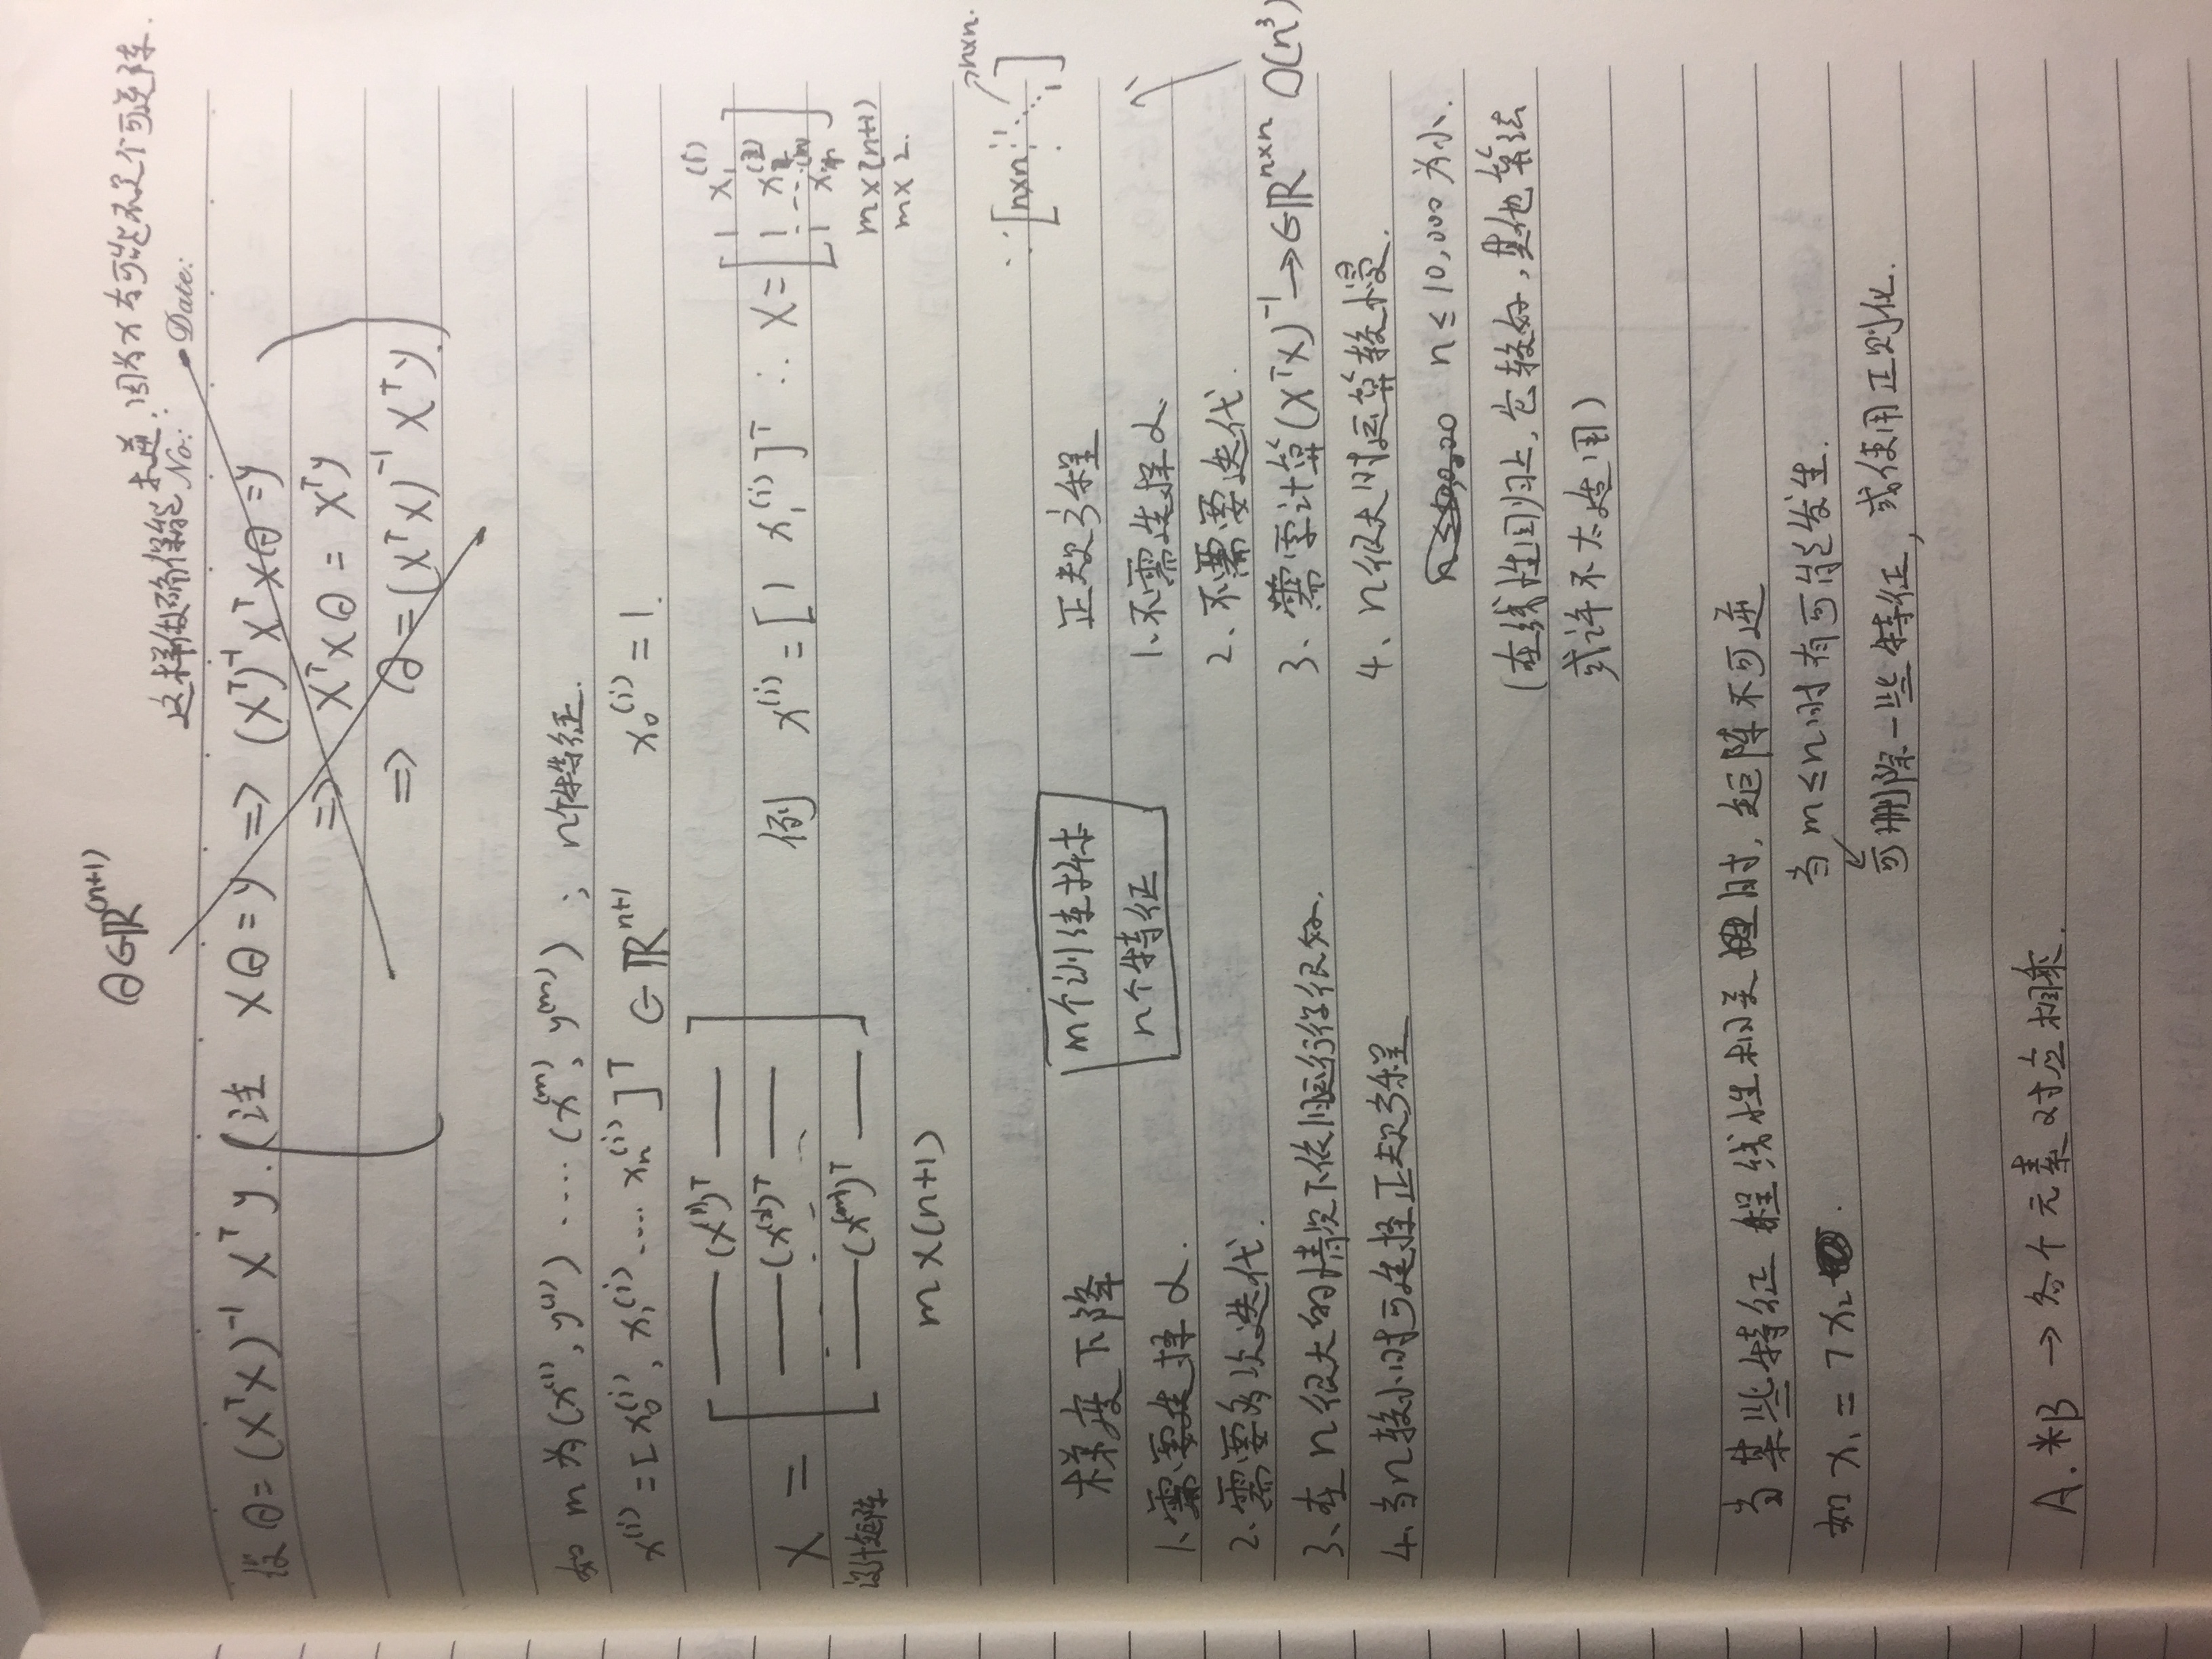 θ∈ℝ^(n+1)
这样做确保能求逆,因为X有可能不是个可逆阵.
No: Date:
设θ=(XᵀX)⁻¹Xᵀy. (注 Xθ=y => (Xᵀ)⁻¹XᵀXθ=y
=> XᵀXθ = Xᵀy
=> θ=(XᵀX)⁻¹Xᵀy.)
如 m 为(x^(1), y^(1)) .... (x^(m), y^(m)) ; n个特征.
x^(i)=[x₀^(i), x₁^(i) .... xₙ^(i)]ᵀ ∈ℝ^(n+1) x₀^(i)=1.
X = [ —— (x^(1))ᵀ ——
—— (x^(2))ᵀ ——
- - - -
—— (x^(m))ᵀ —— ]
设计矩阵
m×(n+1)
例 x^(i)=[1 x₁^(i)]ᵀ ∴ X=[1 x₁^(1)
1 x₂^(2)
- - -
1 xₘ^(m)]
m×(n+1)
m×2.
∵[n×n ] →n×n.
梯度下降
1、需要选择α.
2、需要多次迭代.
3、在n很大的情况下依旧运行得很好.
4、当n较小时可选择正规方程
m个训练样本
n个特征
正规方程
1、不需选择α.
2、不需要迭代.
3、需要计算(XᵀX)⁻¹→∈ℝ^(n×n) O(n³)
4、n很大时运算较慢.
n≤10,000为小.
(在线性回归上,它较好,其他算法
或许不太适用)
当某些特征程线性相关时,矩阵不可逆
如x₁=7x₂.
当m≤n时有可能发生.
↙
可删除一些特征,或使用正则化.
A.*B → 各个元素对应相乘.